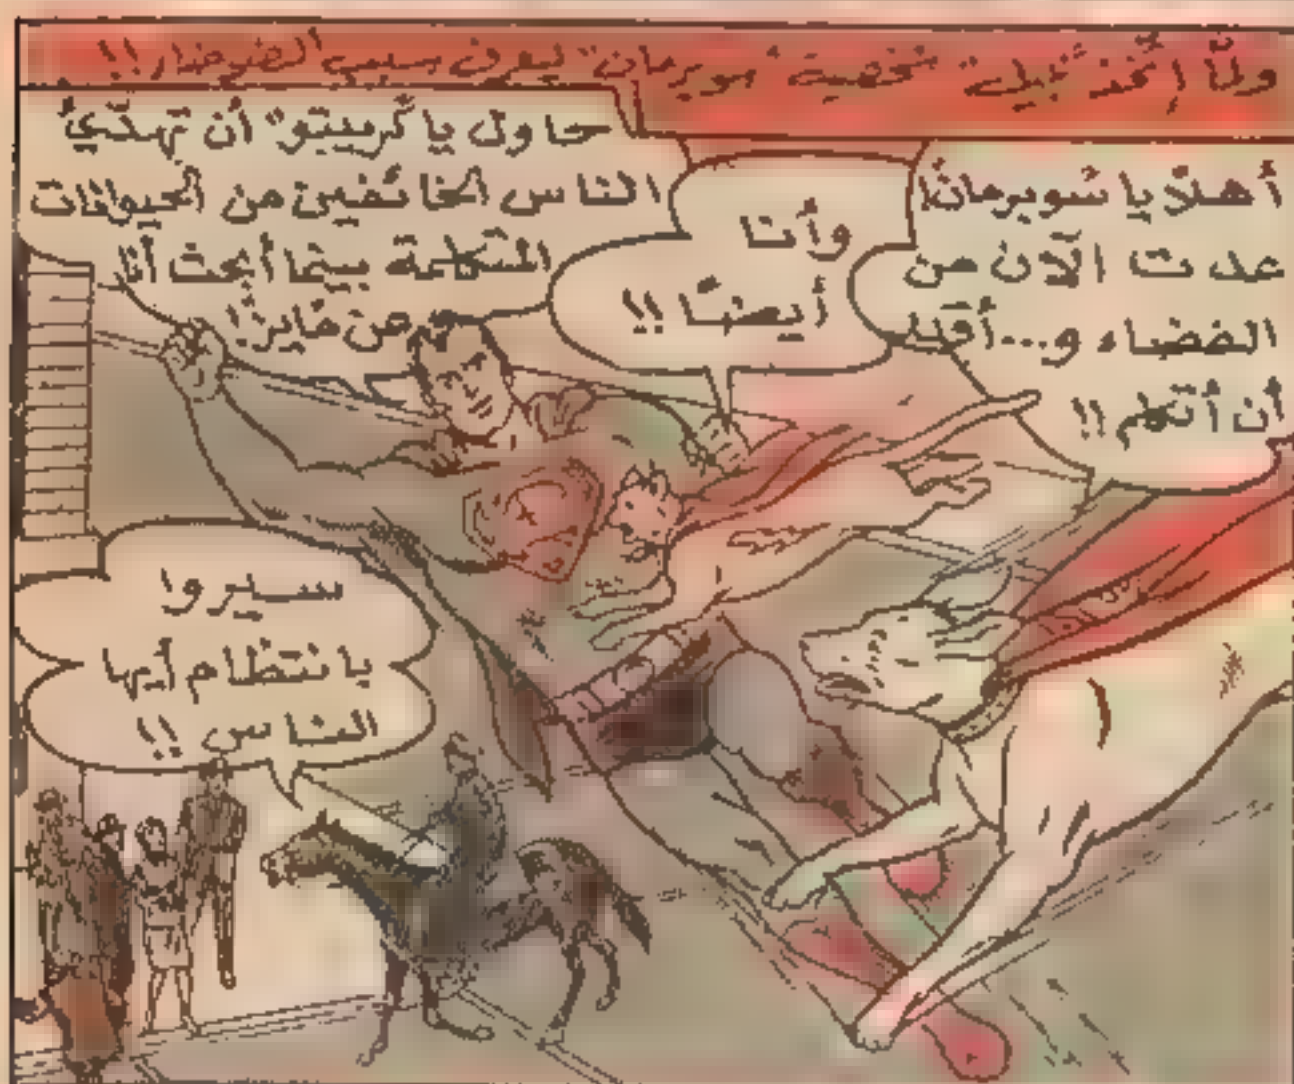 ولمّا إتّخذ "نبيل" شخصية "سوبرمان" ليعرف سبب الضوضاء!!
أهلاً يا سوبرمان!
عدت الآن من
الفضاء و...أقدر
أن أتكلم!!
وأنا
أيضًا!!
حاول يا "كريبتو" أن تهدّئ
الناس الخائفين من الحيوانات
المتكلمة بينما أبحث أنا
عن
سيروا
بانتظام أيها
الناس!!